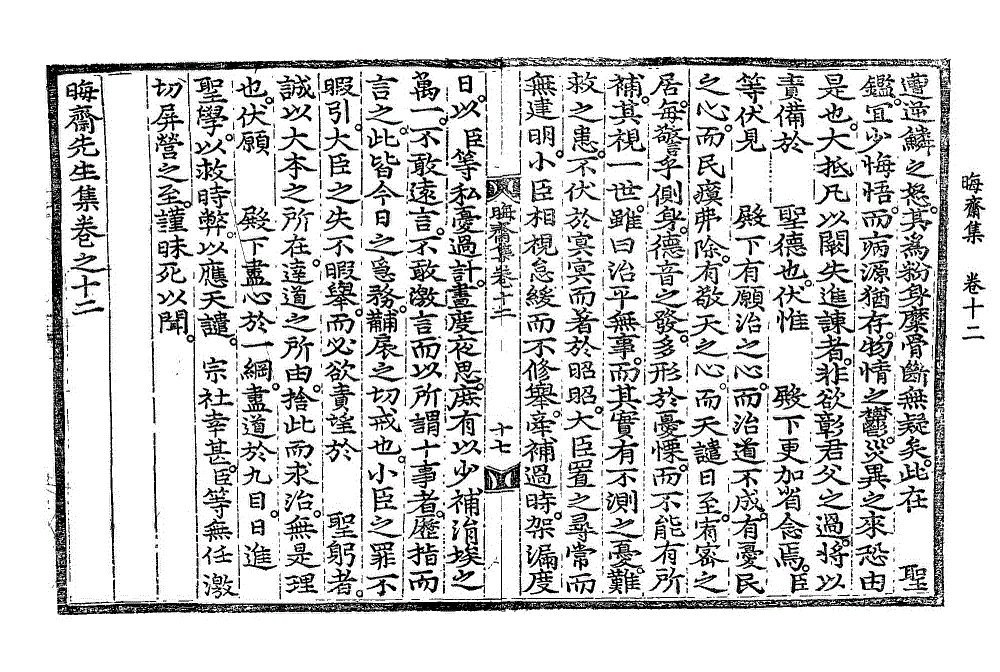 晦齋集 卷十二
遭逆鱗之怒。其爲粉身糜骨斷無疑矣。此在 聖
鑑。宜少悔悟。而病源猶存。物情之鬱。災異之來恐由
是也。大抵凡以闕失進諫者。非欲彰君父之過。將以
責備於 聖德也。伏惟 殿下更加省念焉。臣
等伏見 殿下有願治之心。而治道不成。有憂民
之心。而民瘼弗除。有敬天之心。而天譴日至。宥密之
居。每警乎側身。德音之發。多形於憂慄。而不能有所
補。其視一世雖曰治平無事。而其實有不測之憂。難
救之患。不伏於冥冥而著於昭昭。大臣置之尋常而
無建明。小臣相視怠緩而不修擧。牽補過時。架漏度
晦齋集卷十二
十七
日。以臣等私憂過計。晝度夜思。庶有以少補涓埃之
萬一。不敢遠言。不敢激言。而以所謂十事者。歷指而
言之。此皆今日之急務。黼扆之切戒也。小臣之罪不
暇引。大臣之失不暇擧。而必欲責望於 聖躬者。
誠以大本之所在。達道之所由。捨此而求治。無是理
也。伏願 殿下盡心於一綱。盡道於九目。日進
聖學。以救時弊。以應天譴。 宗社幸甚。臣等無任激
切屛營之至。謹昧死以聞。
晦齋先生集卷之十二